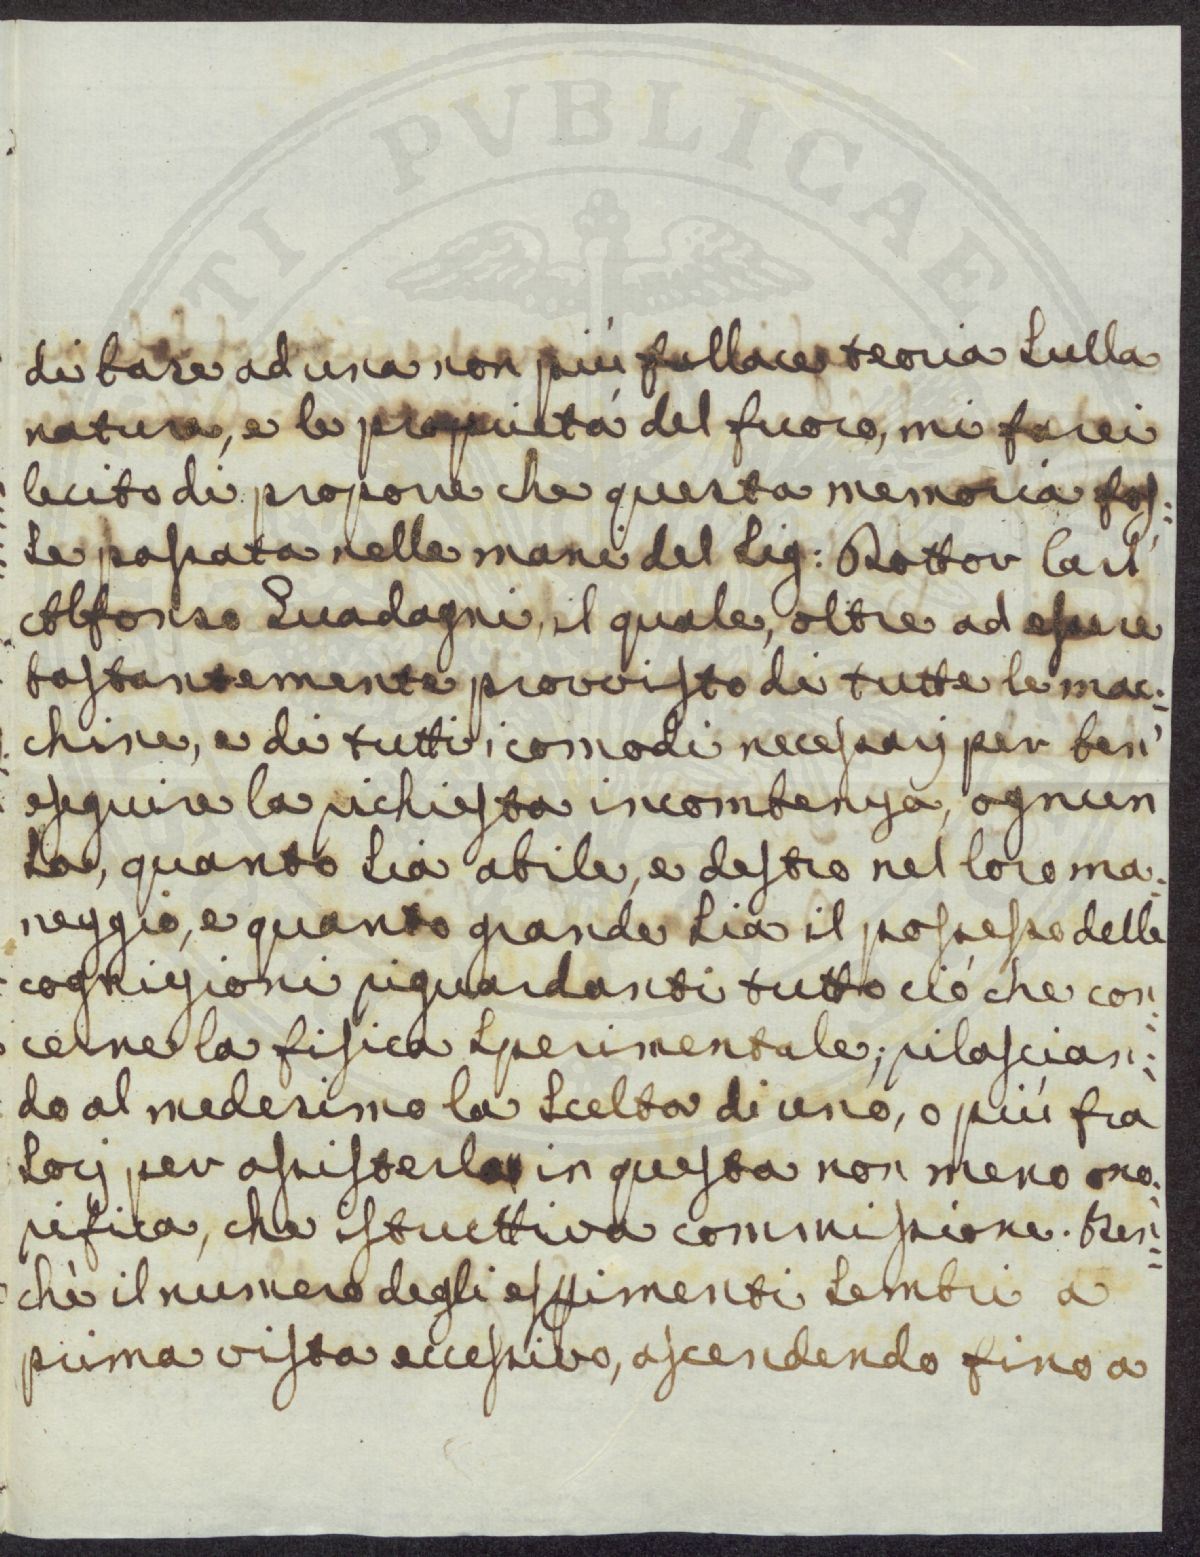 TI PVBLICAE
di base ad una non più fallace teoria sulla
natura, e le proprietá del fuoco, mi farei
lecito di proporre che questa memoria fos=
se passata nelle mani del Sig: Dottor Carl'
Alfonso Guadagni, il quale, oltre ad essere
bastantemente provvisto di tutte le mac=
chine, e di tutti i comodi necessarj per ben'
eseguire la richiesta incombenza, ognun
sa, quanto sia abile, e destro nel loro ma=
neggio, e quanto grande sia il possesso delle
cognizioni riguardanti tutto ció che con=
cerne la fisica sperimentale; rilascian=
do al medesimo la scelta di uno, o piú fra
Socj per assisterlo in questa non meno ono=
rifica, che istruttiva commissione. Ben=
chè il numero degli esperimenti sembri a
prima vista eccessivo, ascendendo fino a